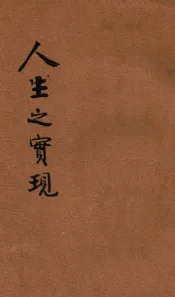 人生之實現